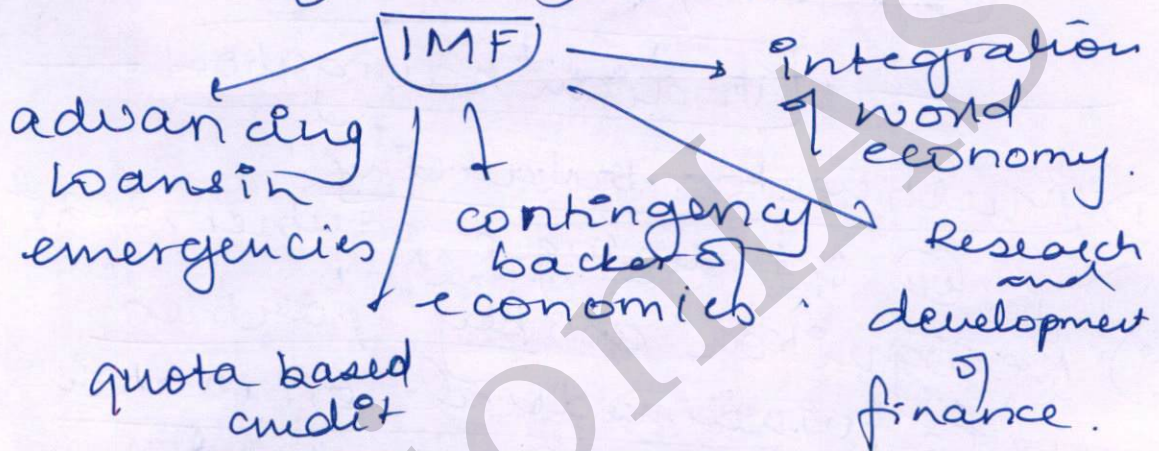 IMF
advancing
loans in
emergencies
quota based
credit
contingency
backer of
economies.
integration
of world
economy.
Research
and
development
of
finance.